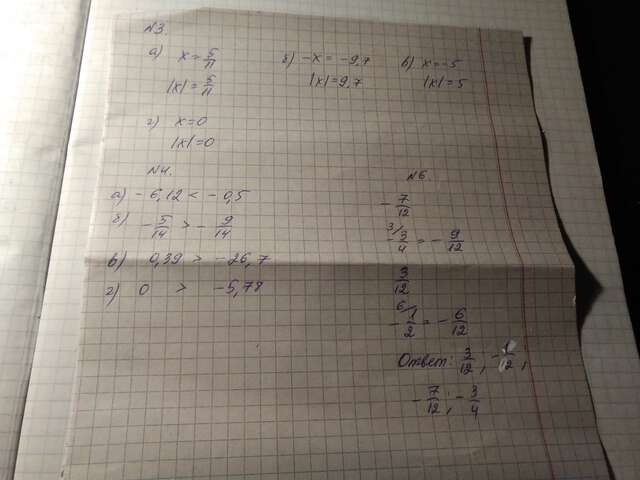 №3.
а) x = 5/11   б) -x = -9,7   в) x = -5
|x| = 5/11   |x| = 9,7   |x| = 5
г) x = 0
|x| = 0
№4.
а) - 6,12 < - 0,5
б) - 5/14 > - 9/14
в) 0,39 > - 26,7
г) 0 > - 5,78
№6.
- 7/12
3/ - 3/4 = - 9/12
3/12
6/ - 1/2 = - 6/12
Ответ: 3/12 ; - 1/2 ;
- 7/12 ; - 3/4